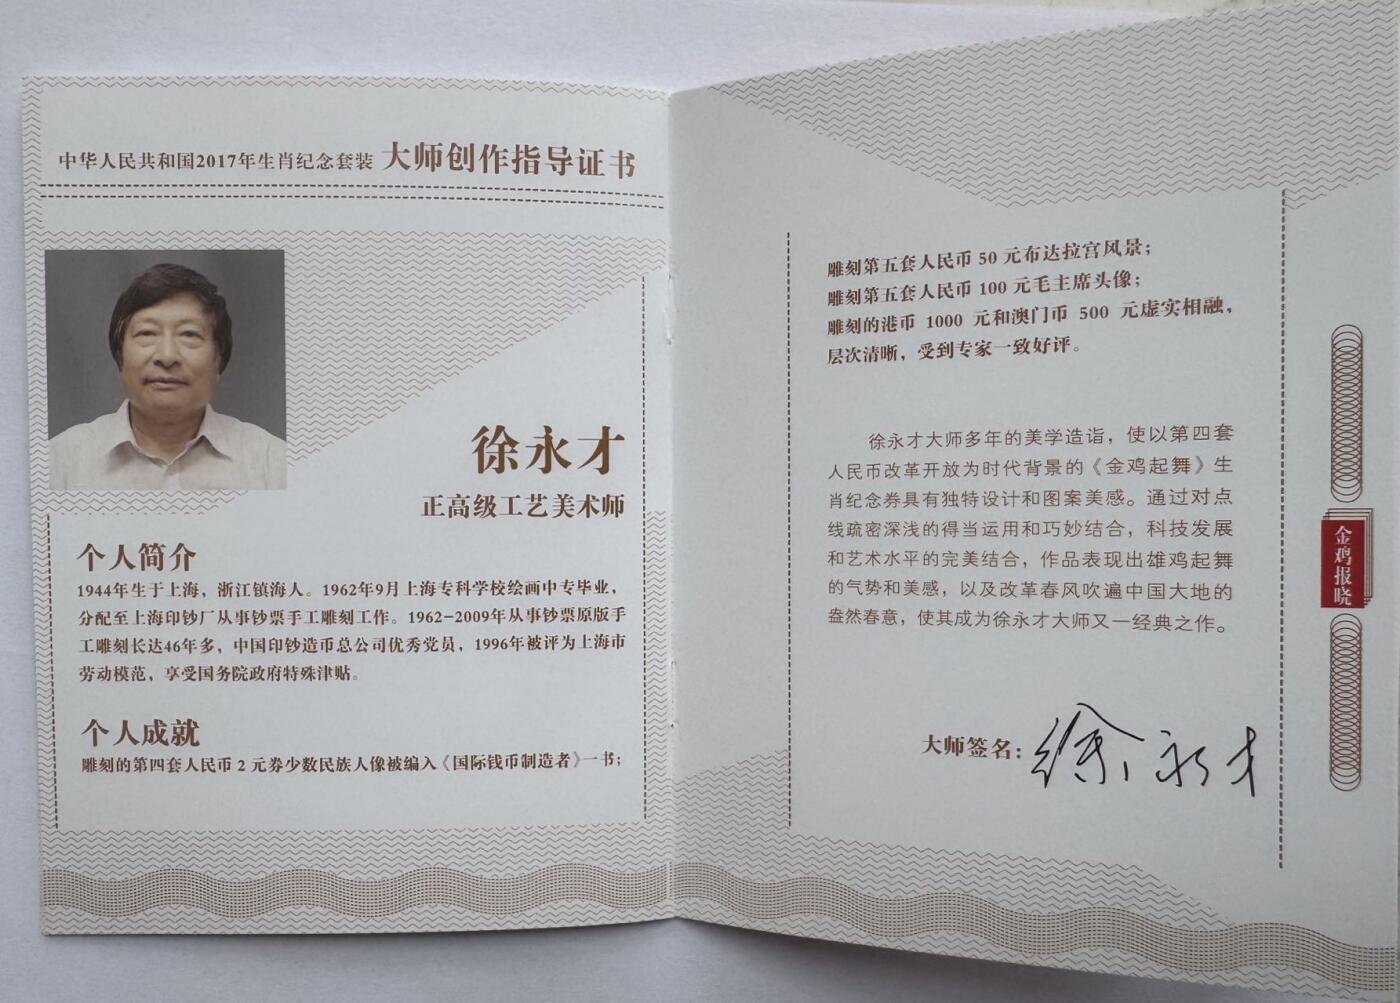 中华人民共和国2017年生肖纪念套装 大师创作指导证书
徐永才
正高级工艺美术师
个人简介
1944年生于上海，浙江镇海人。1962年9月上海专科学校绘画中专毕业，
分配至上海印钞厂从事钞票手工雕刻工作。1962-2009年从事钞票原版手
工雕刻长达46年多，中国印钞造币总公司优秀党员，1996年被评为上海市
劳动模范，享受国务院政府特殊津贴。
个人成就
雕刻的第四套人民币 2 元券少数民族人像被编入《国际钱币制造者》一书；
雕刻第五套人民币 50 元布达拉宫风景；
雕刻第五套人民币 100 元毛主席头像；
雕刻的港币 1000 元和澳门币 500 元虚实相融，
层次清晰，受到专家一致好评。
徐永才大师多年的美学造诣，使以第四套
人民币改革开放为时代背景的《金鸡起舞》生
肖纪念券具有独特设计和图案美感。通过对点
线疏密深浅的得当运用和巧妙结合，科技发展
和艺术水平的完美结合，作品表现出雄鸡起舞
的气势和美感，以及改革春风吹遍中国大地的
盎然春意，使其成为徐永才大师又一经典之作。
大师签名：徐永才
金鸡报晓